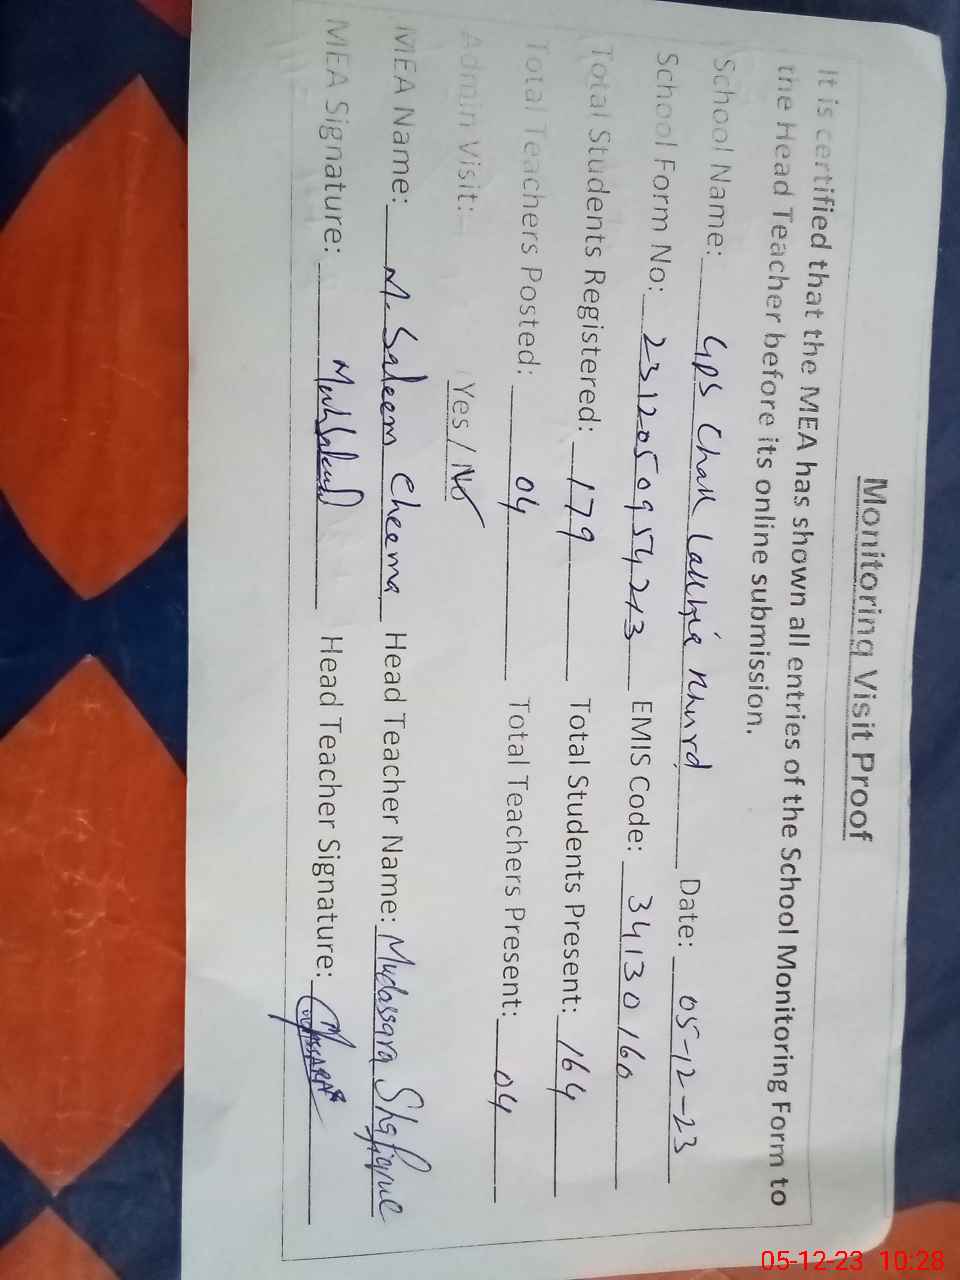 Monitoring Visit Proof
It is certified that the MEA has shown all entries of the School Monitoring Form to
the Head Teacher before its online submission.
School Name: GPS Chak Lakhia Khurd Date: 05-12-23
School Form No: 2312050954213 EMIS Code: 34130160
Total Students Registered: 179 Total Students Present: 164
Total Teachers Posted: 04 Total Teachers Present: 04
Admin Visit: Yes / No
MEA Name: M. Saleem Cheema Head Teacher Name: Mudassara Shafique
MEA Signature: Head Teacher Signature:
05-12-23 10:28